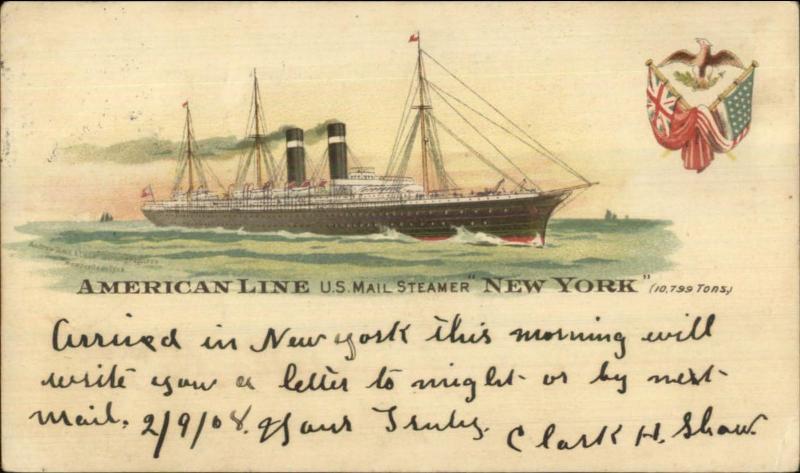 AMERICAN LINE U.S. MAIL STEAMER "NEW YORK" (10,799 Tons,)
Arrived in New york this morning will
write you a letter to night or by next
mail. 2/9/08. Yours Truly. Clark H. Shaw.